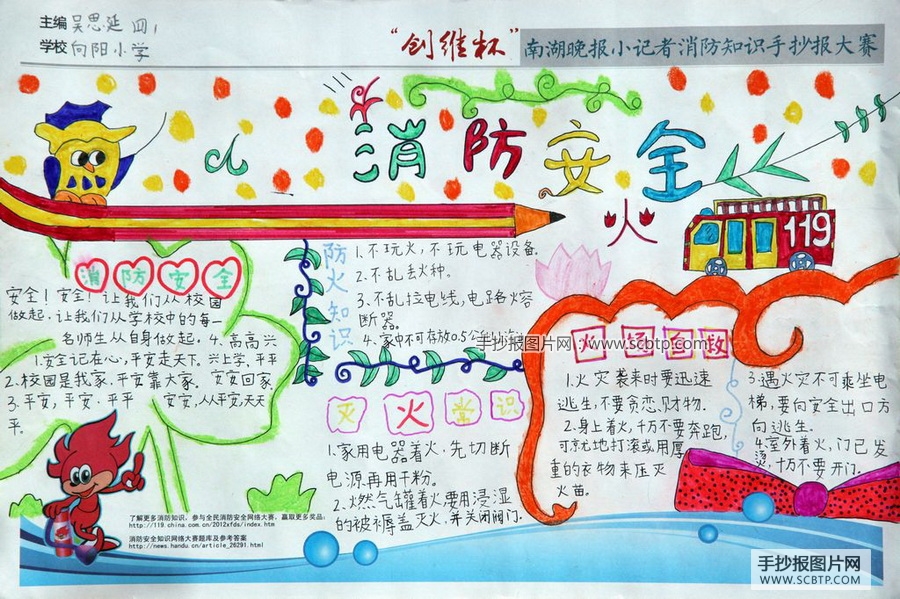 主编 吴思延 四1
学校 向阳小学
“创维杯”南湖晚报小记者消防知识手抄报大赛
消防安全
火
119
消防安全
安全！安全！让我们从校园
做起，让我们从学校中的每一
名师生从自身做起。4、高高兴
1.安全记在心，平安走天下。兴上学，平平
2.校园是我家，平安靠大家。安安回家
3.平安，平安，平平安安，从平安，天天
平。
防火知识
1.不玩火，不玩电器设备。
2.不乱丢火种。
3.不乱拉电线，电路熔
断器。
4.家中不可存放0.5公
手抄报图片网：www.scbtp.com
灭火常识
1.家用电器着火，先切断
电源再用干粉。
2.燃气罐着火要用浸湿
的被褥盖灭火，并关闭阀门。
火场自救
1.火灾袭来时要迅速
逃生，不要贪恋财物。
2.身上着火，千万不要奔跑，
可就地打滚或用厚
重的衣物来压灭
火苗。
3.遇火灾不可乘坐电
梯，要向安全出口方
向逃生。
4.室外着火，门已发
烫，千万不要开门。
了解更多消防知识，参与全民消防安全网络大赛，赢取更多奖品：
http://119.china.com.cn/2012xfds/index.htm
消防安全知识网络大赛题库及参考答案
http://news.handu.cn/article_26291.html
手抄报图片网
WWW.SCBTP.COM